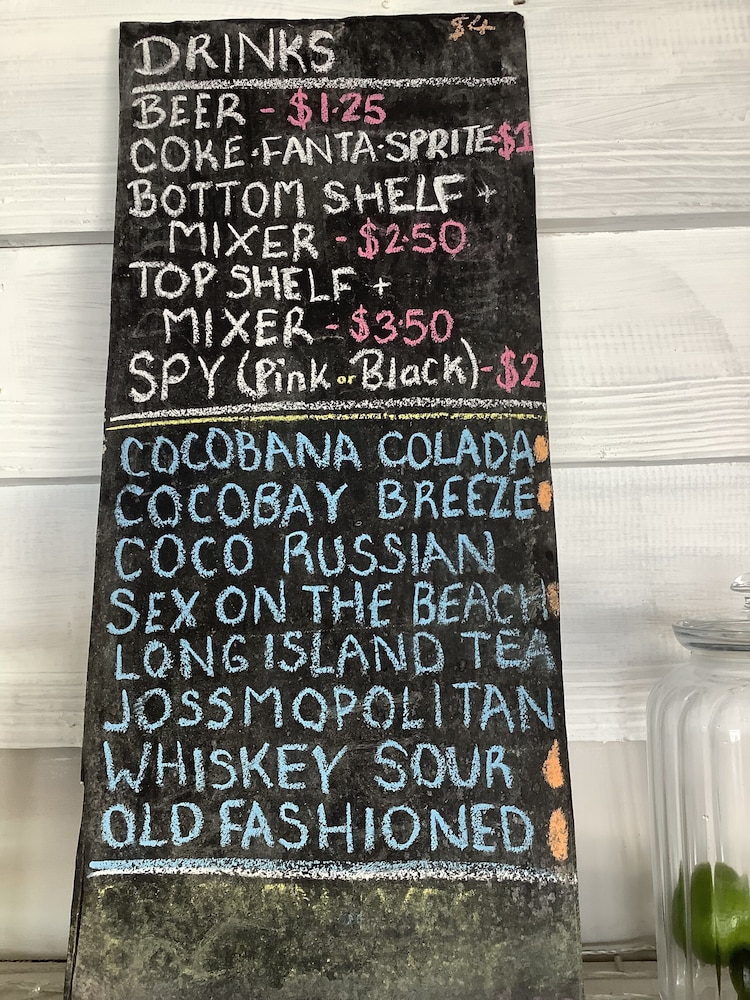 DRINKS $4
BEER - $1.25
COKE·FANTA·SPRITE-$1
BOTTOM SHELF +
MIXER - $2.50
TOP SHELF +
MIXER - $3.50
SPY (Pink or Black) - $2
COCOBANA COLADA
COCOBAY BREEZE
COCO RUSSIAN
SEX ON THE BEACH
LONG ISLAND TEA
JOSSMOPOLITAN
WHISKEY SOUR
OLD FASHIONED